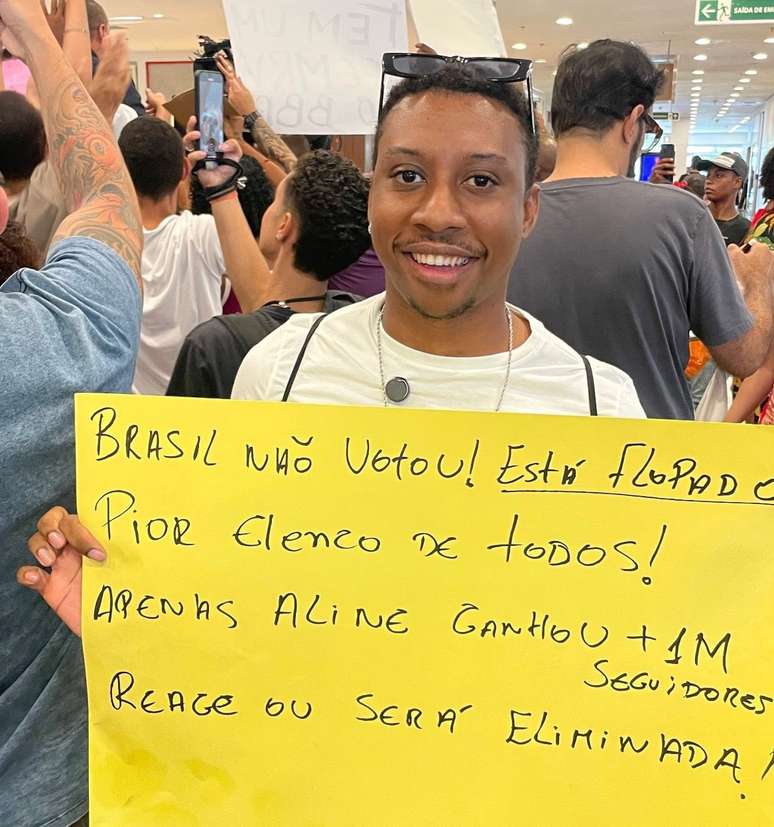 TEM UM
BBB
SAÍDA DE EM
BRASIL NÃO VOTOU! ESTÁ FLOPADO
PIOR ELENCO DE TODOS!
APENAS ALINE GANHOU +1M
SEGUIDORES
REAGE OU SERÁ ELIMINADA!